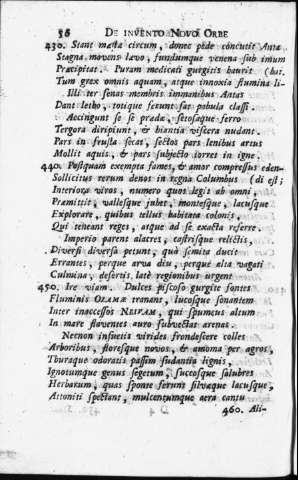 56 DE INVENTO NOVO ORBE
430. Stant mœsta circum, donec pede concutit Anta
Stagna movens lævo, fundumque venena sub imum
Præcipitat. Puram medicati gurgitis haurit (hui.
Tum grex omnis aquam, atque innoxia flumina li-
Illi ter senas membris immanibus Antas
Dant letho, totique ferunt sat pabula classi.
Accingunt se se prædæ, setosaque ferro
Tergora diripiunt, & hiantia viscera nudant.
Pars in frusta secat, sectos pars lenibus artus
Mollit aquis, & pars subjecto torret in igne.
440. Postquam exempta fames, & amor compressus eden-
Sollicitus rerum denos in regna Columbus (di est;
Interiora viros, numero quos legit ab omni,
Præmittit, vallesque jubet, montesque, lacusque
Explorare, quibus tellus habitata colonis,
Qui teneant reges, atque ad se exacta referre.
Imperio parent alacres, castrisque relictis,
Diversi diversa petunt, quà semita ducit
Errantes, perque arva diu, perque alta vagati
Culmina, desertis latè regionibus urgent
450. Ire viam. Dulces piscoso gurgite fontes
Fluminis OZAMÆ tranant, lucosque sonantem
Inter inaccessos NEIPAM, qui spumeus altum
In mare flaventes auro subvectat arenas.
Necnon insuetis virides frondescere colles
Arboribus, floresque novos, & amoma per agros,
Thuraque odoratis passim sudantia lignis,
Ignotumque genus segetum, succosque salubres
Herbarum, quas sponte ferunt silvæque lacusque,
Attoniti spectant, mulcentumque aera cantu
460. Ali-